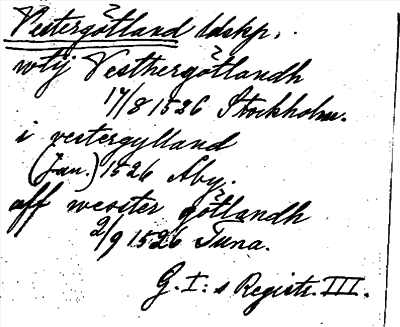 Vestergötland ldskp.
wtij Vesthergötlandh
17/8 1526 Stockholm.
i vestergylland
(Jan.) 1526 Åby.
aff wester götlandh
2/9 1526 Tuna.
G. I: s Registr. III.